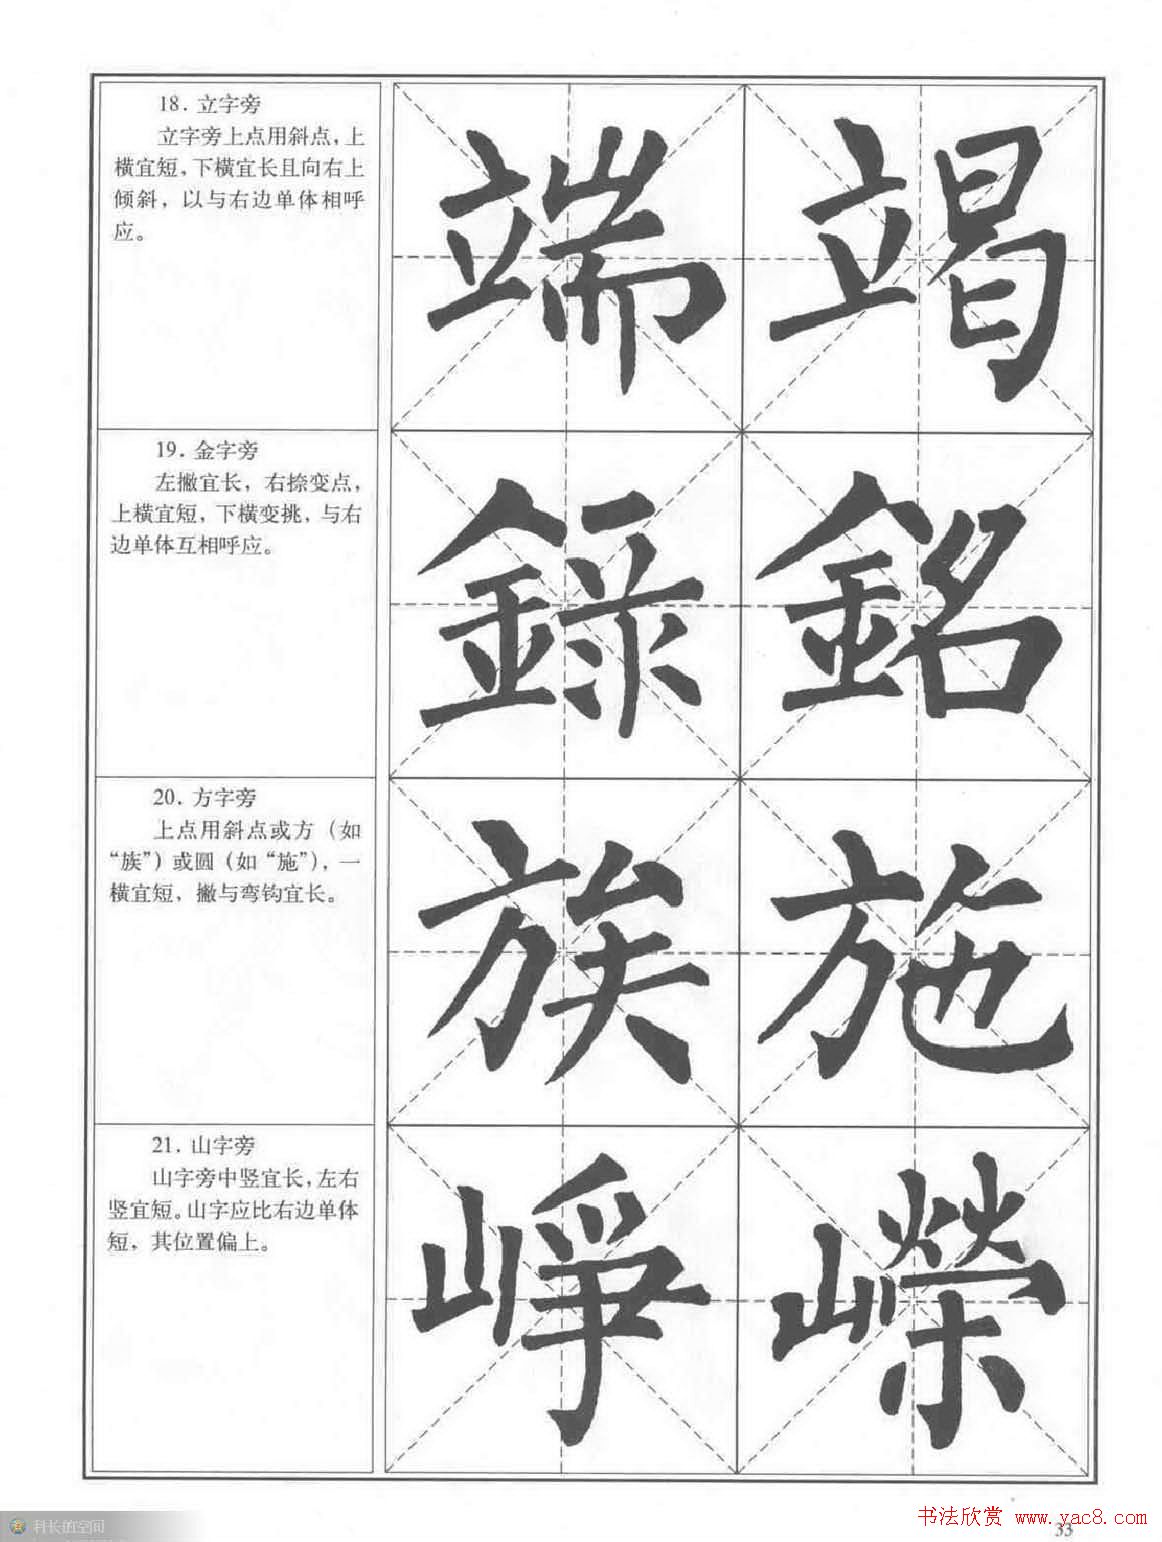 18. 立字旁
立字旁上点用斜点，上
横宜短，下横宜长且向右上
倾斜，以与右边单体相呼
应。
端 竭
19. 金字旁
左撇宜长，右捺变点，
上横宜短，下横变挑，与右
边单体互相呼应。
録 銘
20. 方字旁
上点用斜点或方（如
“族”）或圆（如“施”），一
横宜短，撇与弯钩宜长。
族 施
21. 山字旁
山字旁中竖宜长，左右
竖宜短。山字应比右边单体
短，其位置偏上。
崢 嶸
科长的空间
书法欣赏 www.yac8.com
33